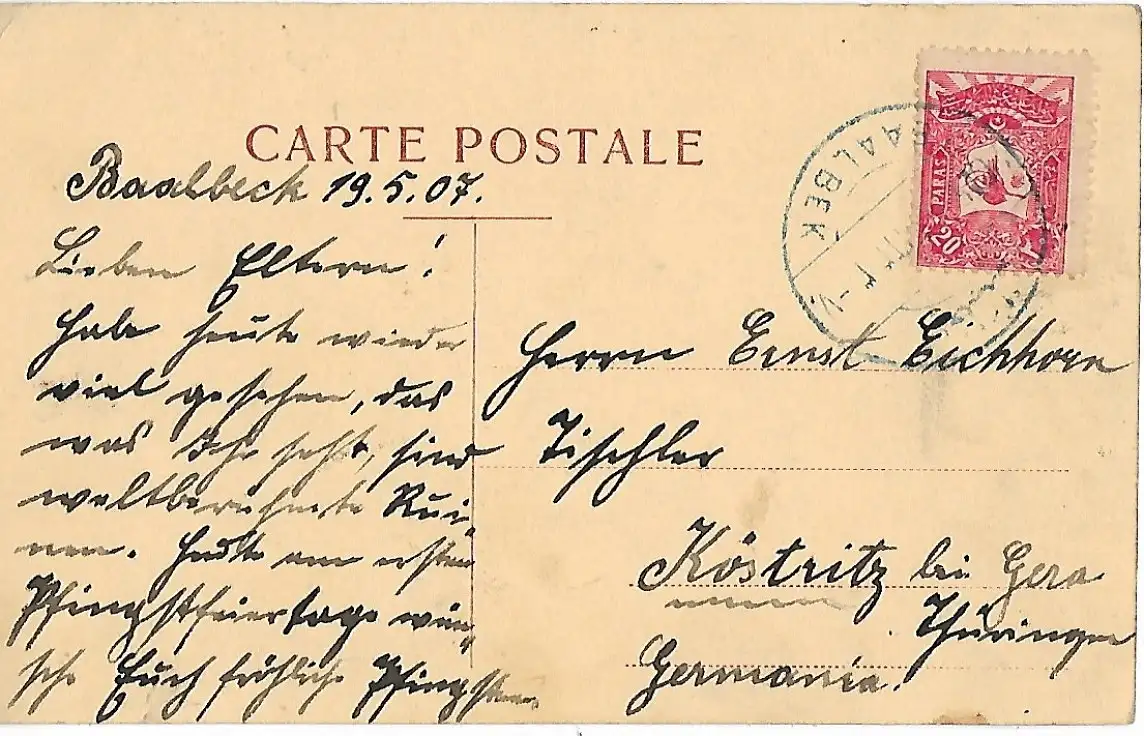 CARTE POSTALE
Baalbeck 19.5.07.
Lieben Eltern!
Habe heute wieder
viel gesehen, das
was Ihr seht, sind
weltberühmte Rui-
nen. Heute am ersten
Pfingstfeiertage wün-
sche Euch fröhliche Pfingsten
BAALBEK
PARAS
20
Herrn Ernst Eichhorn
Tischler
Köstritz bei Gera
Thüringen
Germania.